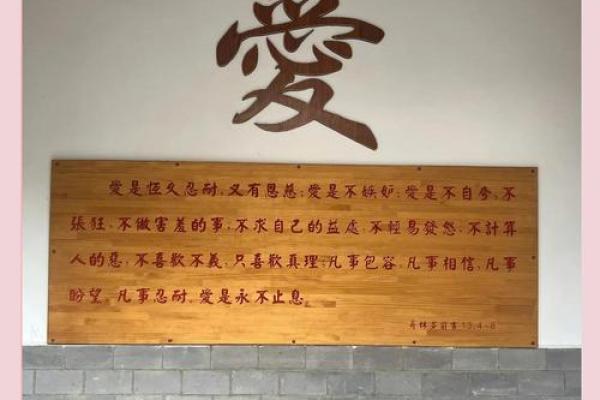 愛
愛是恆久忍耐,又有恩慈;愛是不嫉妒;愛是不自夸,不
張狂,不做害羞的事,不求自己的益處,不輕易發怒,不計算
人的惡,不喜歡不義,只喜歡真理;凡事包容,凡事相信,凡事
盼望,凡事忍耐,愛是永不止息。
哥林多前書13:4-8